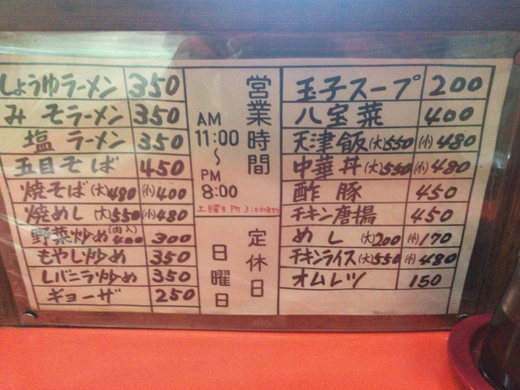 しょうゆラーメン 350
みそラーメン 350
塩ラーメン 350
五目そば 450
焼そば(大)480 (小)400
焼めし(大)550 (小)480
野菜炒め(肉入)400 300
もやし炒め 350
レバニラ炒め 350
ギョーザ 250
営業時間
AM
11:00
〜
PM
8:00
土曜日PM 3:00
定休日
日曜日
玉子スープ 200
八宝菜 400
天津飯(大)550 (小)480
中華丼(大)550 (小)480
酢豚 450
チキン唐揚 450
めし (大)200 (小)170
チキンライス(大)550 (小)480
オムレツ 150